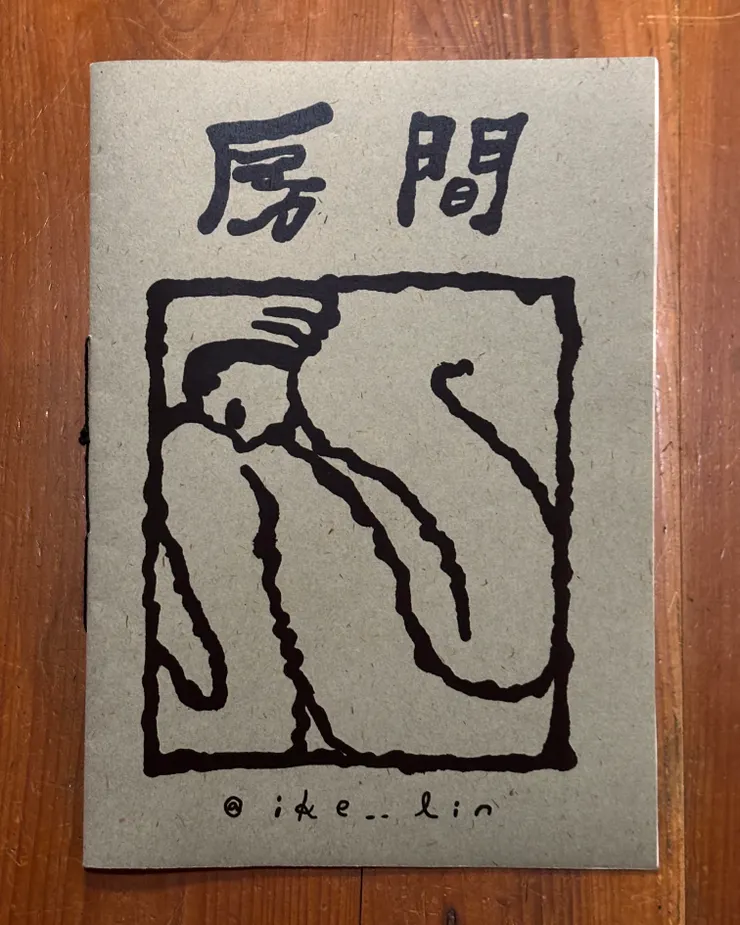 房間
@ike__lin